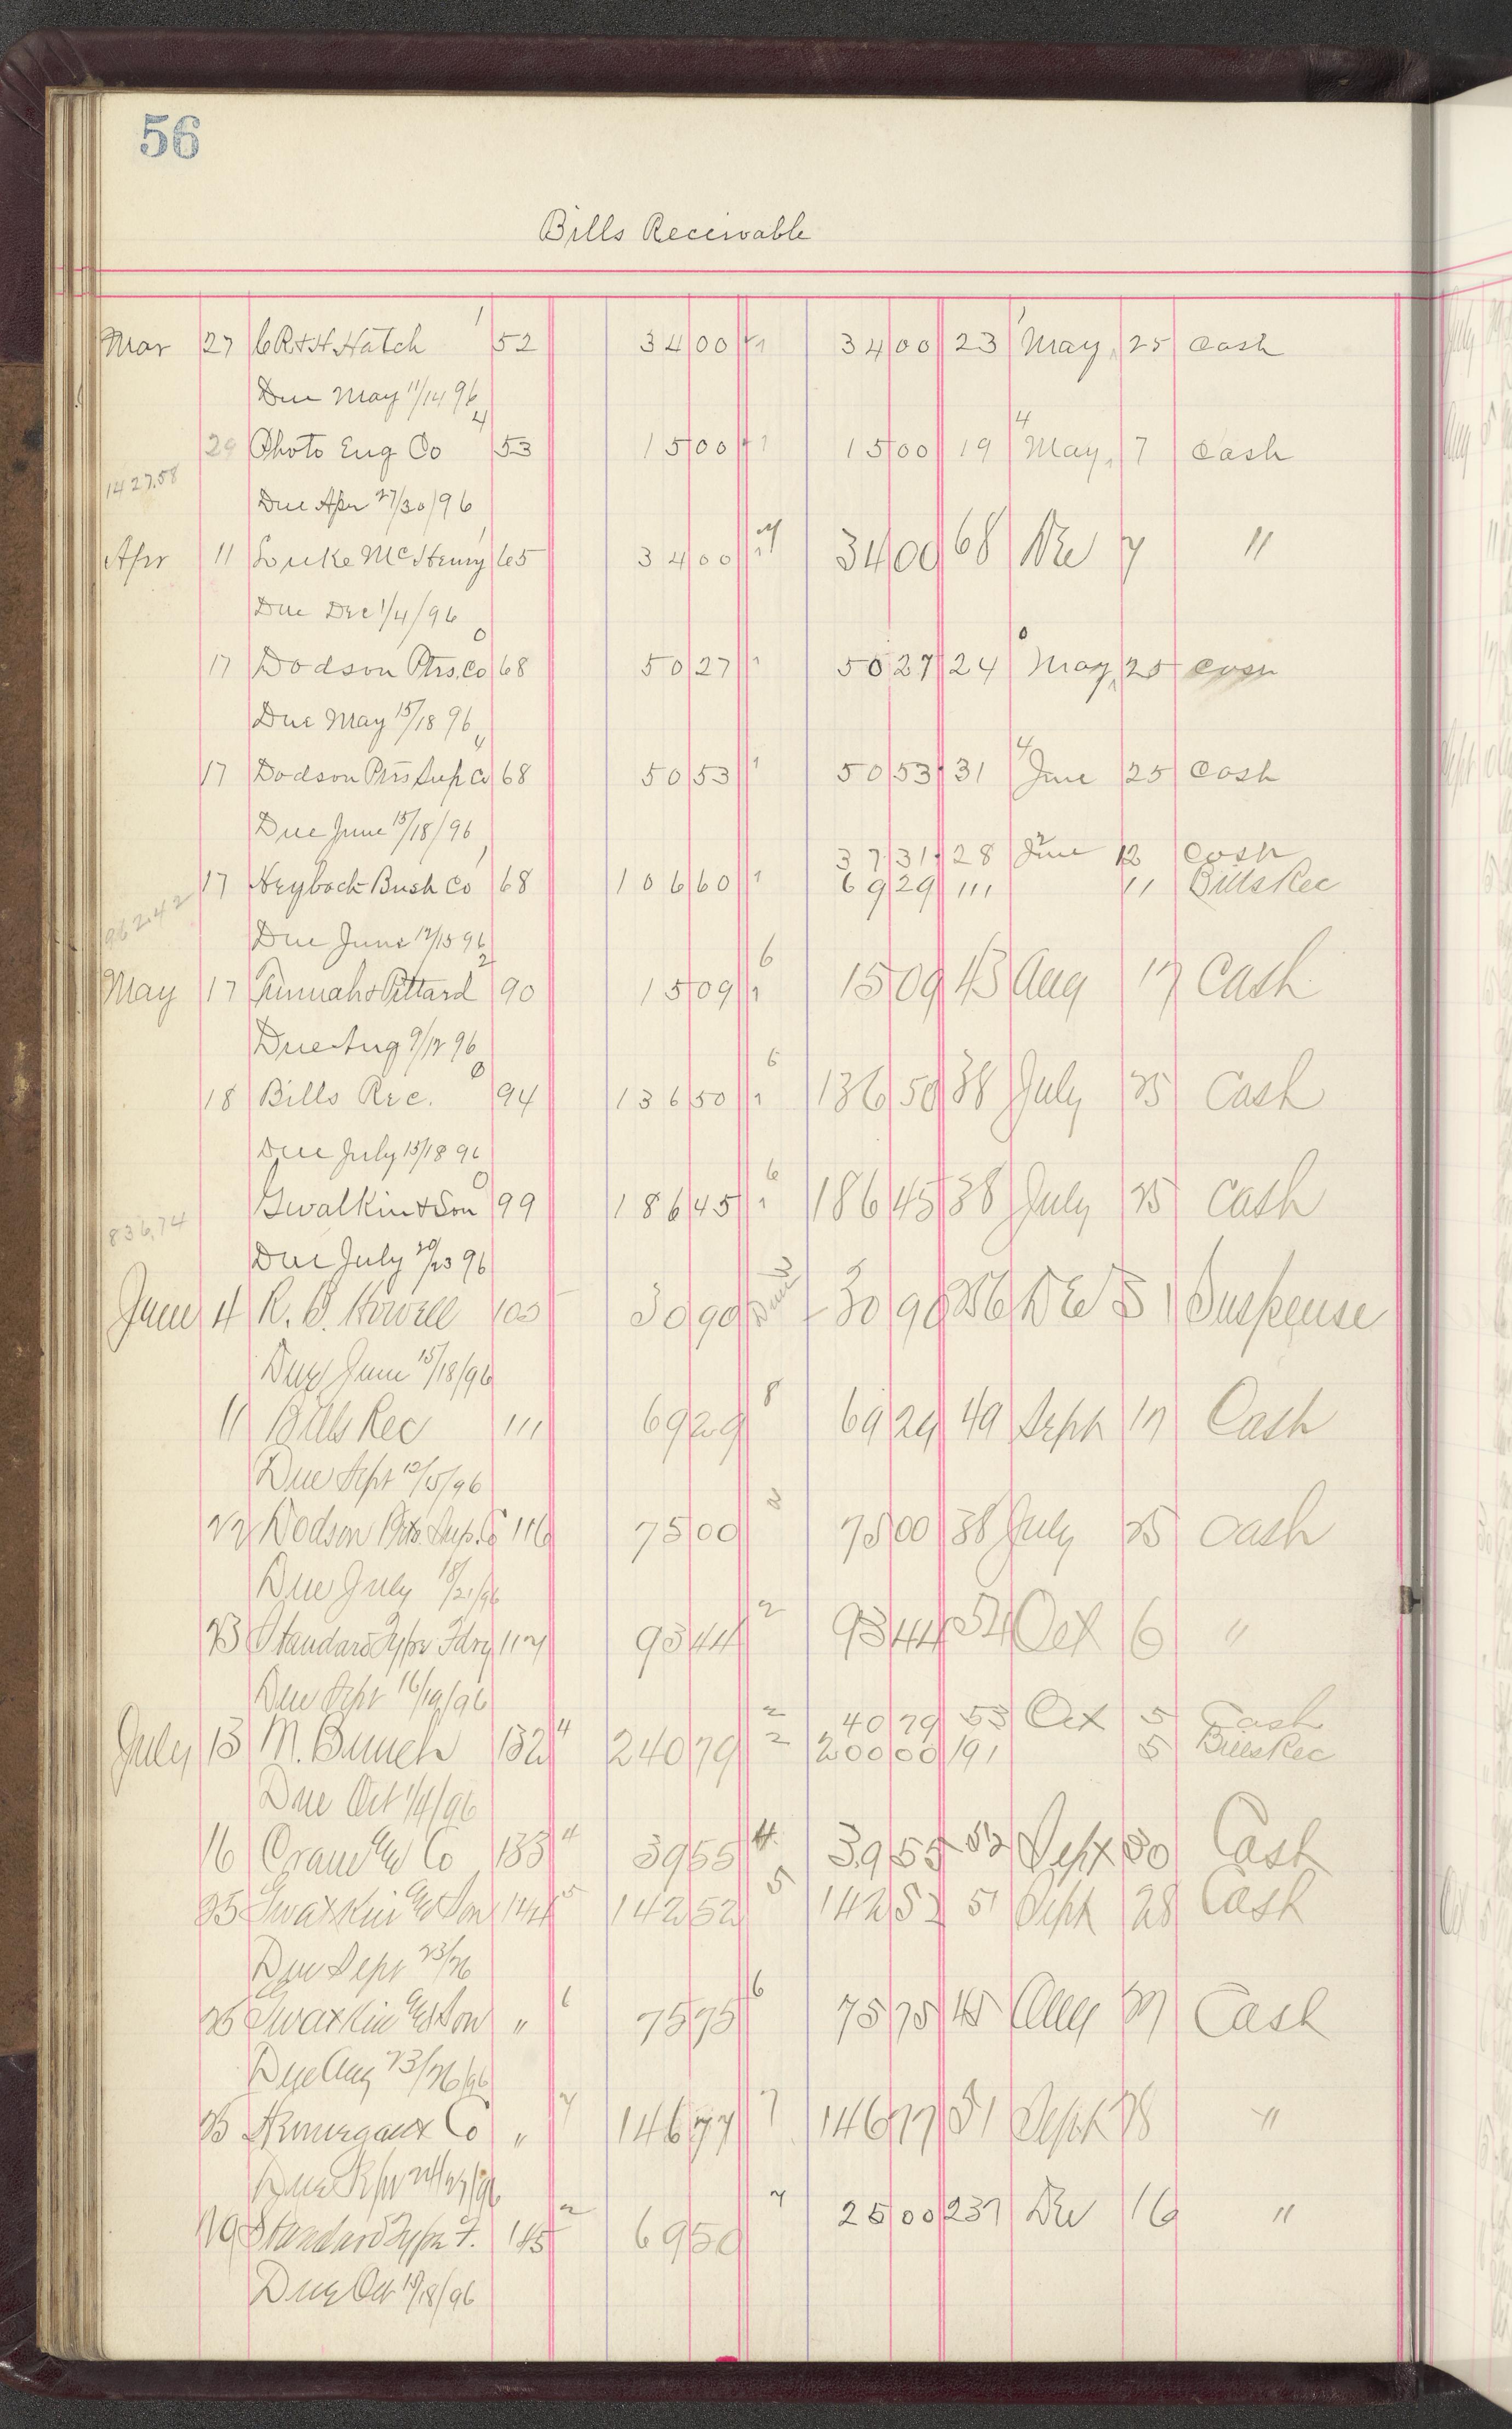 56
Bills Receivable
Mar 27 C R & H Hatch 1 52 34 00 34 00 23 May 25 Cash
Due May 11/14 96
29 Photo Eng Co 4 53 15 00 15 00 19 May 7 Cash
1427.58
Due Apr 27/30/96
Apr 11 Luke McHenry 65 34 00 34 00 68 Dec 7 "
Due Dec 1/4/96
17 Dodson Ptrs. Co 0 68 50 27 50 27 24 May 25 Cash
Due May 15/18 96
17 Dodson Ptrs Sup Co 4 68 50 53 50 53 31 June 25 Cash
Due June 15/18/96
37 31 28 June 12 Cash
17 Heybach Bush Co 1 68 106 60 69 29 111 11 Bills Rec
962.42
Due June 12/15 96
May 17 Tunnah & Pittard 2 90 15 09 6 15 09 43 Aug 17 Cash
Due Aug 9/12 96
18 Bills Rec. 0 94 136 50 6 136 50 38 July 25 Cash
Due July 15/18 96
Gwatkin & Son 0 99 186 45 6 186 45 38 July 25 Cash
836.74
Due July 20/23 96
June 4 R. B. Howell 105 30 90 30 90 256 Dec 31 Suspense
Due June 15/18/96
11 Bills Rec 111 69 29 8 69 29 49 Sept 17 Cash
Due Sept 12/15/96
22 Dodson Ptrs. Sup. Co 116 75 00 2 75 00 38 July 25 Cash
Due July 18/21/96
23 Standard Type Fdry 117 93 44 2 93 44 54 Oct 6 "
Due Sept 16/19/96
2 40 79 53 Oct 5 Cash
July 13 M. Bunch 132 4 240 79 2 200 00 191 5 Bills Rec
Due Oct 1/4/96
16 Crane & Co 133 4 39 55 4 39 55 52 Sept 30 Cash
25 Gwatkin & Son 144 5 142 52 5 142 52 51 Sept 28 Cash
Due Sept 23/26
25 Gwatkin & Son " 6 75 75 6 75 75 45 Aug 27 Cash
Due Aug 23/26/96
25 Co " 7 146 77 7 146 77 51 Sept 28 "
7 25 00 237 Dec 16 "
Standard Type F. 145 2 69 50
Due Oct 15/18/96